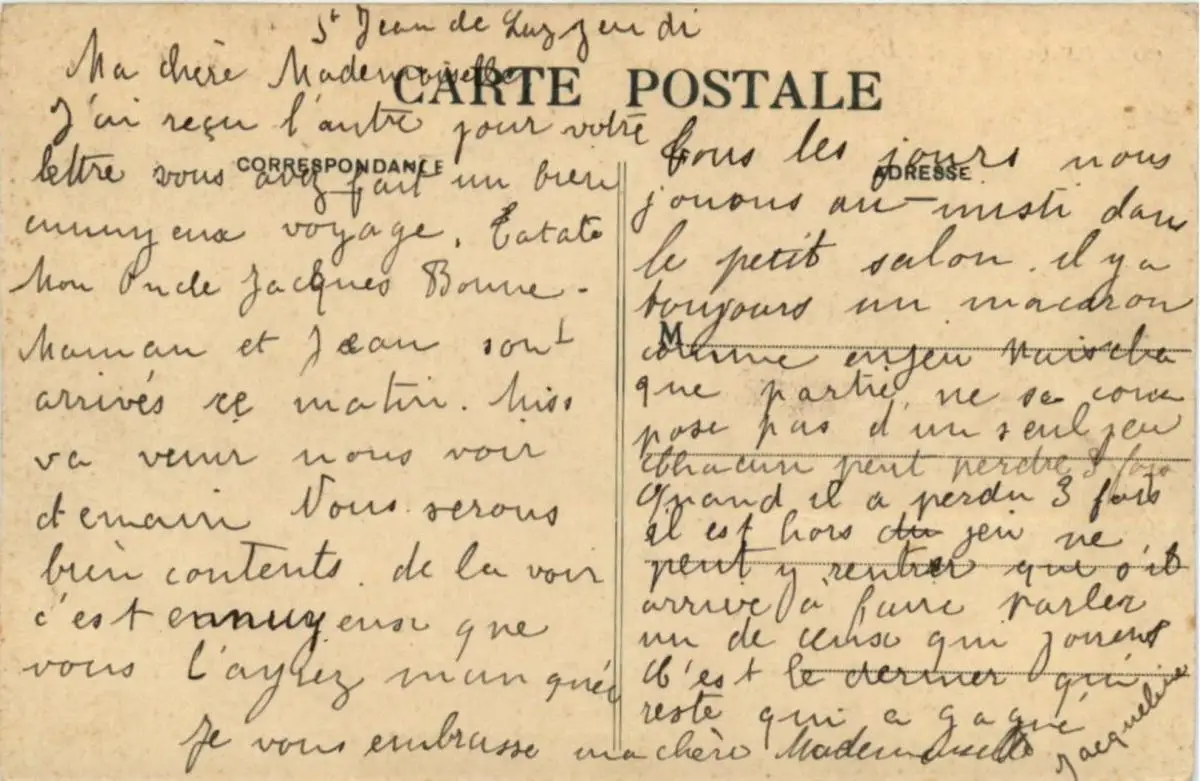 St Jean de Luz jeudi
Ma chère Mademoiselle
CARTE POSTALE
J'ai reçu l'autre jour votre
CORRESPONDANCE
lettre vous avez fait un bien
ennuyeux voyage. Tatate
Mon Oncle Jacques Bonne-
Maman et Jean sont
arrivés ce matin. Miss
va venir nous voir
demain Nous serons
bien contents de la voir
c'est ennuyeux que
vous l'ayiez manquée
ADRESSE
Tous les jours nous
jouons au misti dans
le petit salon. il y a
toujours un macaron
M
comme enjeu Mais cha
que partie ne se com
pose pas d'un seul jeu
Chacun peut perdre 3 fois
Quand il a perdu 3 fois
il est hors du jeu ne
peut y rentrer que s'il
arrive à faire parler
un de ceux qui jouent
C'est le dernier qui
reste qui a gagné
Je vous embrasse ma chère Mademoiselle
Jacqueline